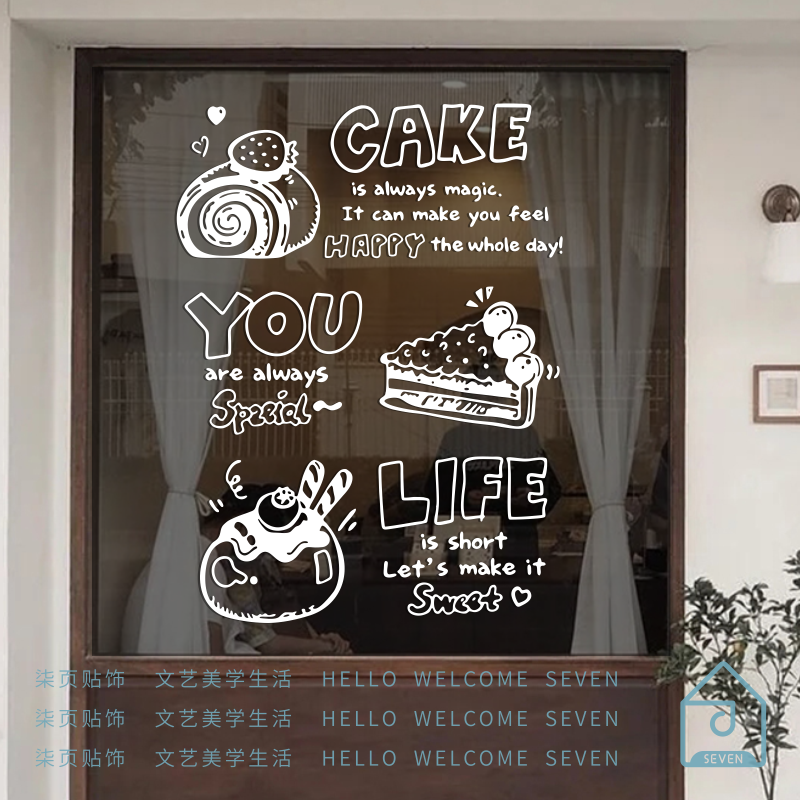 CAKE
is always magic.
It can make you feel
HAPPY the whole day!
YOU
are always
Special~
LIFE
is short
Let's make it
Sweet
柒页贴饰 文艺美学生活 HELLO WELCOME SEVEN
柒页贴饰 文艺美学生活 HELLO WELCOME SEVEN
柒页贴饰 文艺美学生活 HELLO WELCOME SEVEN
SEVEN